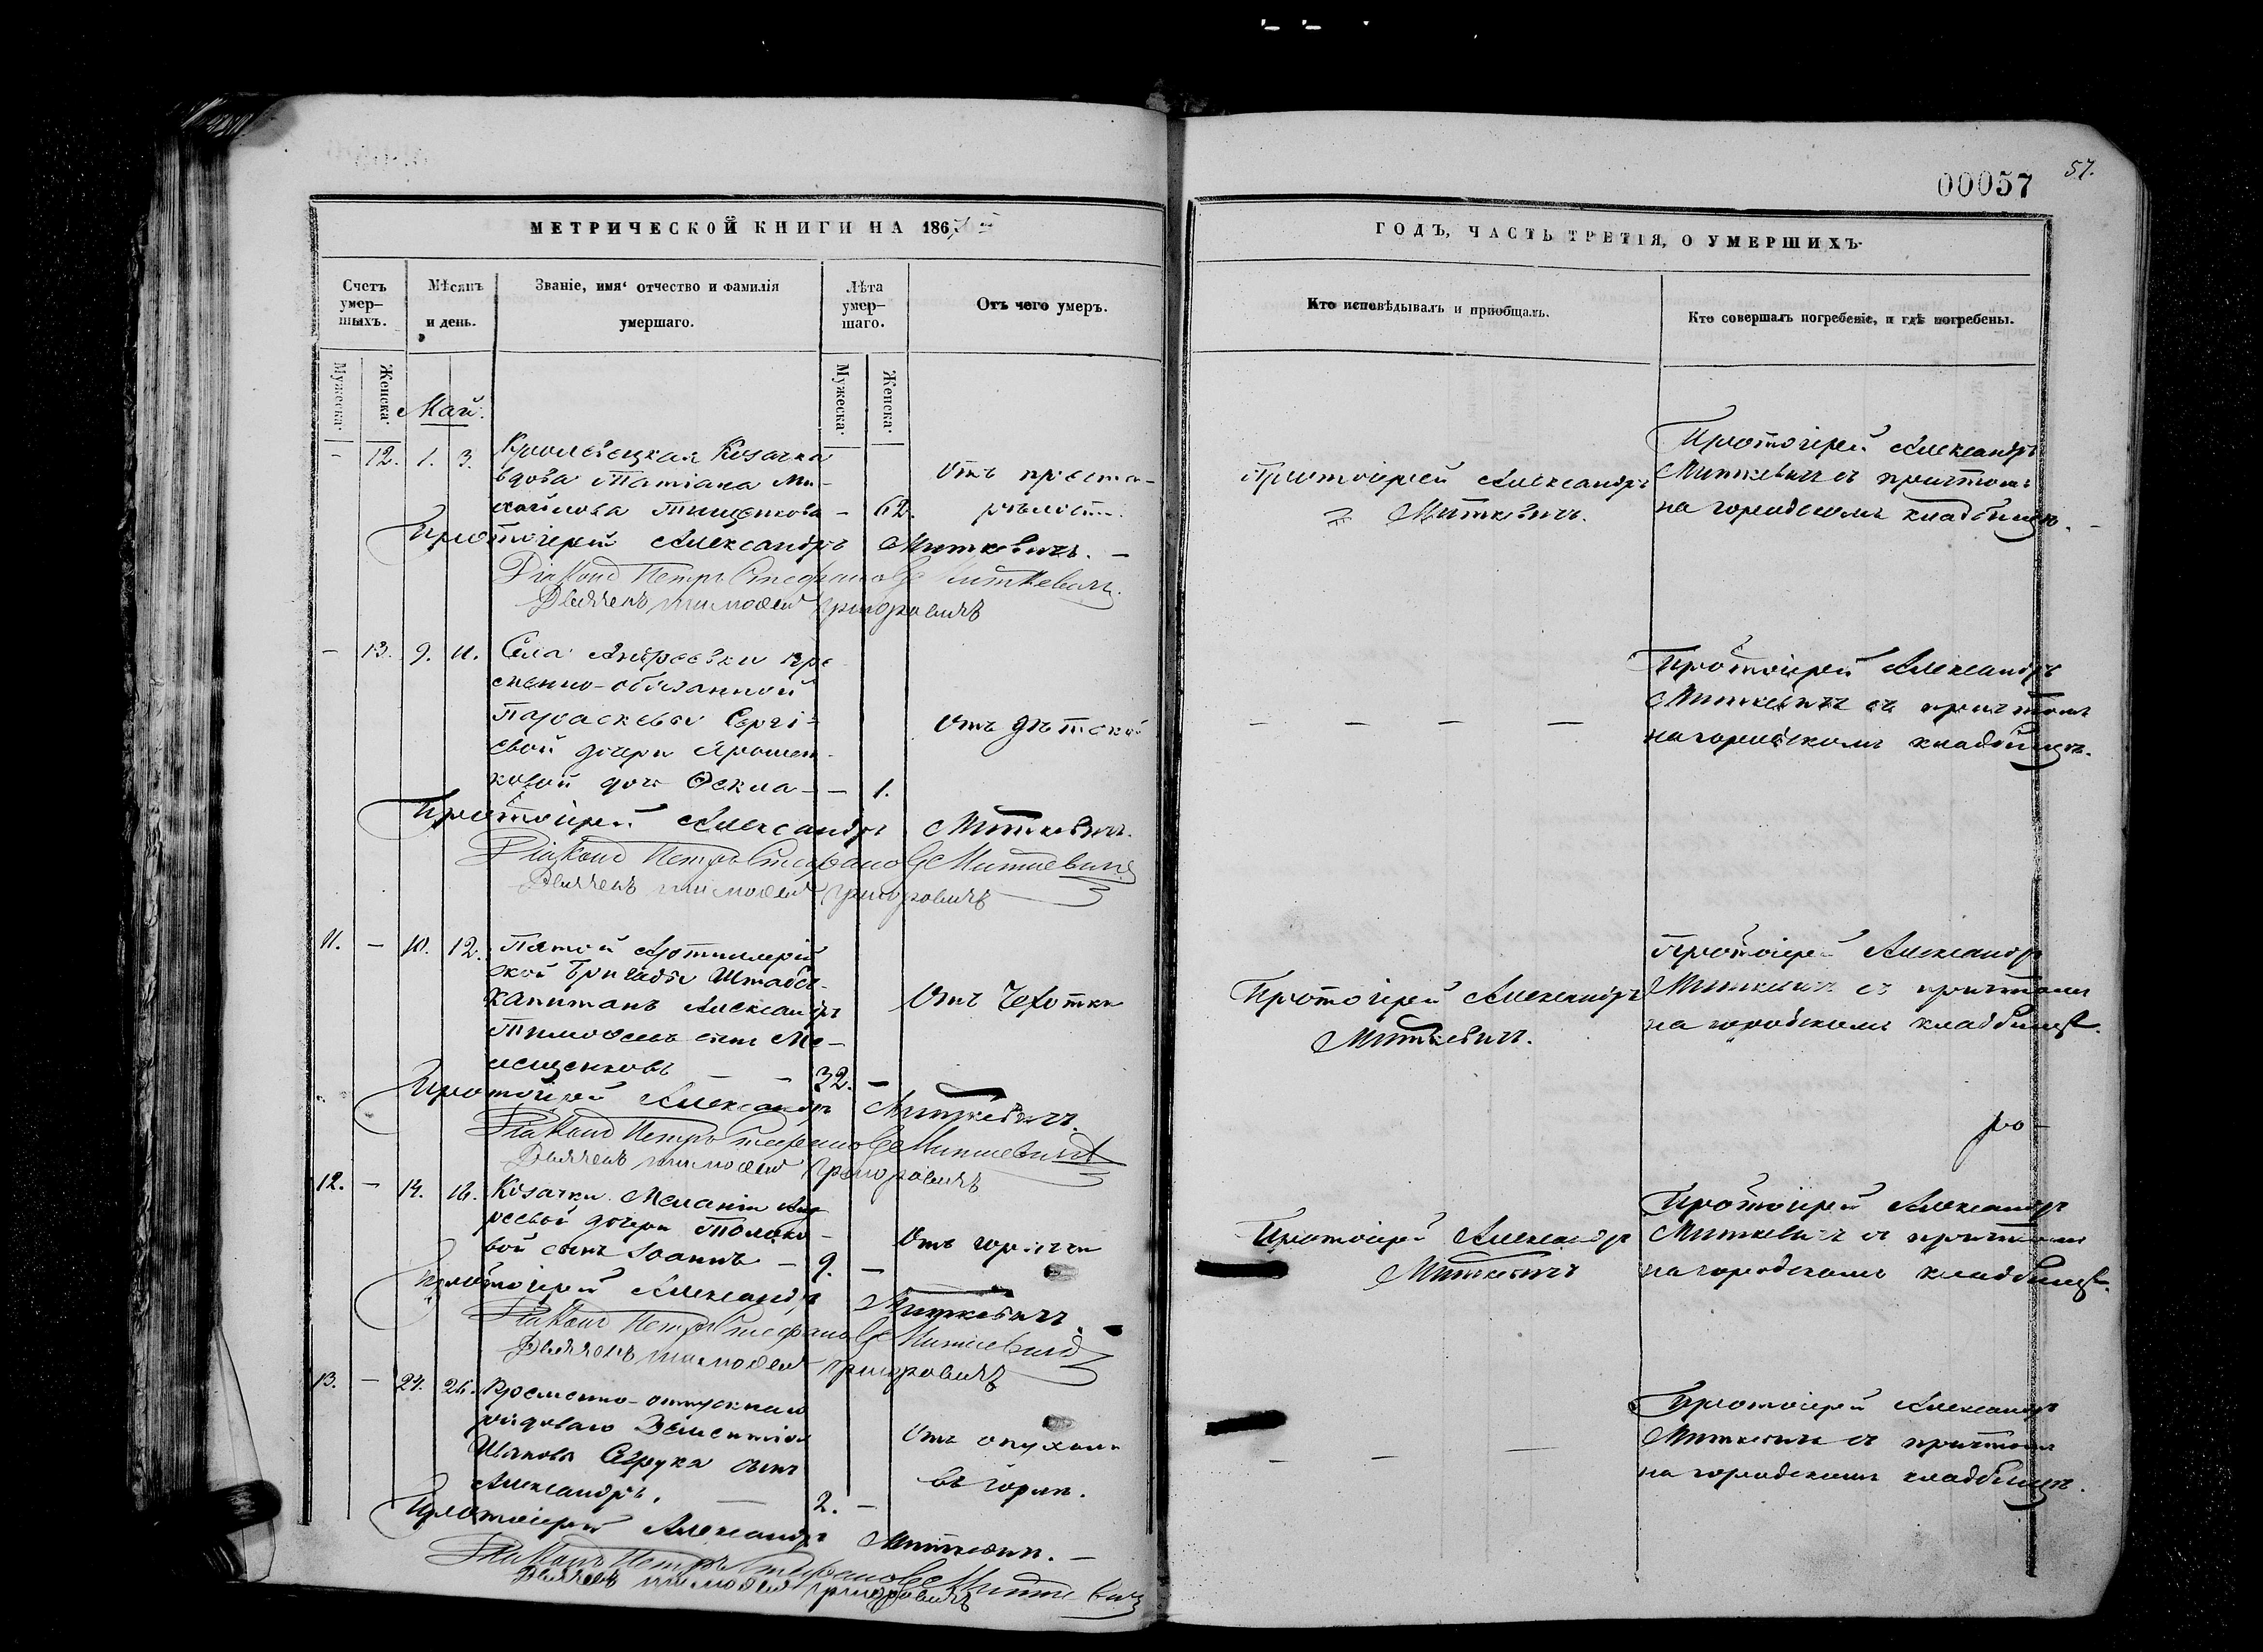 00057
57.
МЕТРИЧЕСКОЙ КНИГИ НА 1867й
ГОДЪ, ЧАСТЬ ТРЕТІЯ, О УМЕРШИХЪ.
Счетъ умер-шыхъ.
Мѣсяцъ и день.
Званіе, имя, отчество и фамилія умершаго.
Лѣта умер-шаго.
Отъ чего умеръ.
Кто исповѣдывалъ и пріобщалъ.
Кто совершалъ погребеніе, и гдѣ погребены.
Мужеска.
Женска.
Мужеска.
Женска.
Май.
- 12. 1. 3. Кролевецкая Козачка
вдова Татіана Ми-
хайлова Тищенкова - 62.
Отъ преста-
рѣлости.
Протоіерей Александръ
Миткевичъ.
Протоіерей Александръ
Миткевичъ съ причтомъ
на городскомъ кладбищѣ.
Протоіерей Александръ Миткевичъ.
Діаконъ Петръ Стефановъ Миткевичъ.
Дьячекъ Тимофей Григоровичъ
- 13. 9. 11. Села Андреевки вре
менно-обязанной
Параскевы Сергі-
евой дочери Ярошен-
ковой дочь Фекла - - 1.
Отъ дѣтской
- - - -
Протоіерей Александръ
Миткевичъ съ причтомъ
на городскомъ кладбищѣ.
Протоіерей Александръ Миткевичъ.
Діаконъ Петръ Стефановъ Миткевичъ
Дьячекъ Тимофей Григоровичъ
11. - 10. 12. Пятой Артиллерій
ской Бригады Штабсъ-
Капитанъ Александръ
Тимофеевъ сынъ
- - 32. -
Отъ Чехотки
Протоіерей Александръ
Миткевичъ.
Протоіерей Александръ
Миткевичъ съ причтомъ
на городскомъ кладбищѣ.
Протоіерей Александръ Миткевичъ.
Діаконъ Петръ Стефановъ Миткевичъ
Дьячекъ Тимофей Григоровичъ
12. - 14. 16. Козачки Меланіи Анд
реевой дочери
вой сынъ Іоаннъ - 9. -
Отъ горячки
Протоіерей Александръ
Миткевичъ
Протоіерей Александръ
Миткевичъ съ причтомъ
на городскомъ кладбищѣ.
Протоіерей Александръ Миткевичъ.
Діаконъ Петръ Стефановъ Миткевичъ
Дьячекъ Тимофей Григоровичъ
13. - 24. 26. Временно-отпускнаго
рядоваго
сынъ
Александръ. - 2. -
Отъ опухоли
въ горлѣ.
- - -
Протоіерей Александръ
Миткевичъ съ причтомъ
на городскомъ кладбищѣ.
Протоіерей Александръ Миткевичъ. -
Діаконъ Петръ Стефановъ Миткевичъ
Дьячекъ Тимофей Григоровичъ